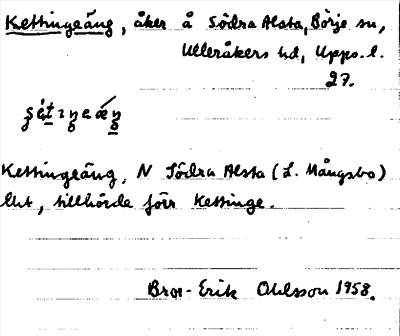 Kettingeäng, åker å Södra Alsta, Börje sn,
Ulleråkers hd, Upps. l.
27.
Kettingeäng, N Södra Alsta (L. Mångsbo)
lht, tillhörde förr Kettinge.
Bror-Erik Ohlsson 1958.